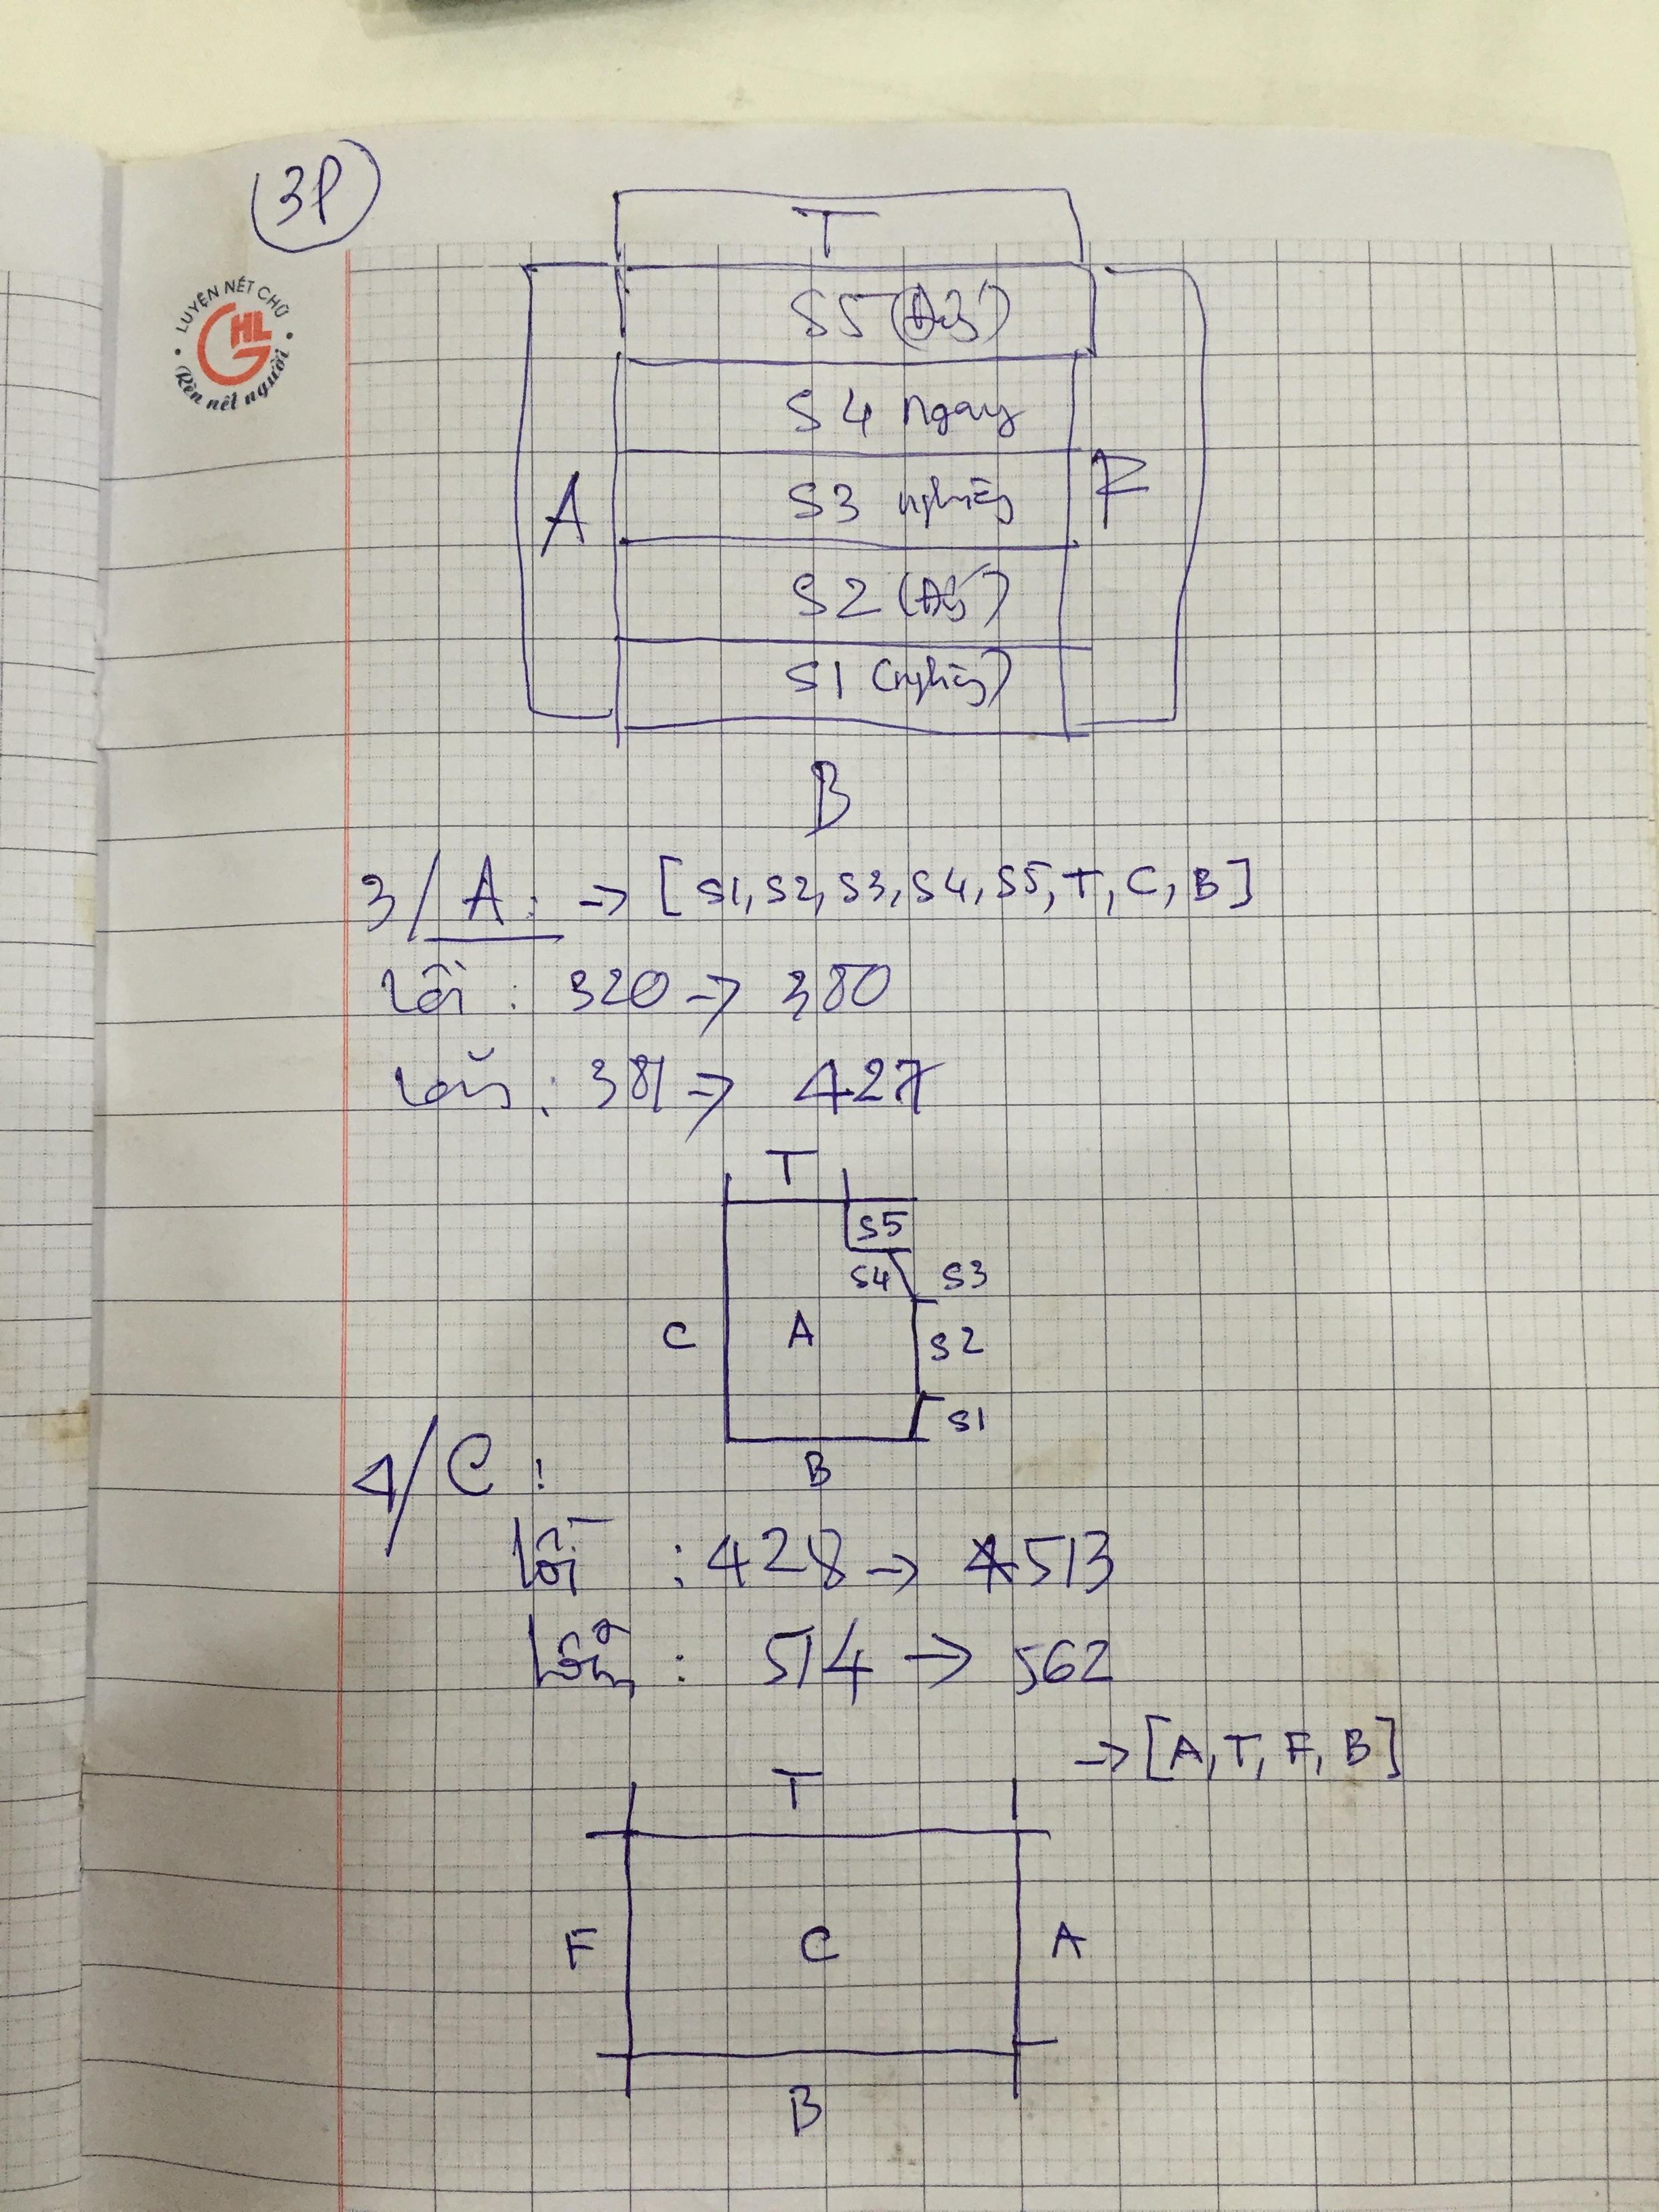 3P
LUYỆN NÉT CHỮ
GHL
Rèn nết người
T
S5 (Đứ)
S4 Ngay
A
S3 nghiêng
F
S2 (Đứ)
S1 (nghiêng)
B
3/ A: -> [S1, S2, S3, S4, S5, T, C, B]
lồi : 320 -> 380
lõm : 381 -> 427
T
S5
S4 S3
C A S2
S1
B
4/ C :
lồi : 428 -> 513
: 514 -> 562
-> [A, T, F, B]
T
F C A
B